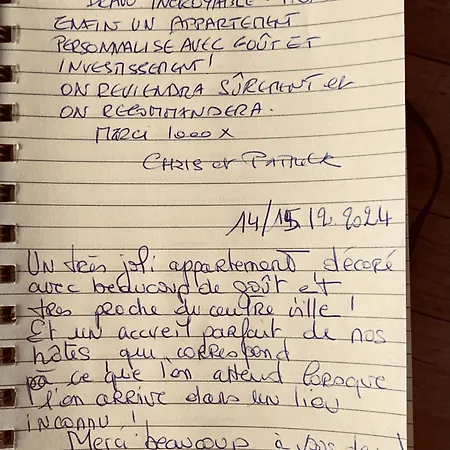 BEAU INCROYABLE
ENFIN UN APPARTEMENT
PERSONNALISÉ AVEC GOÛT ET
INVESTISSEMENT!
ON REVIENDRA SÛREMENT et
ON RECOMMANDERA.
MERCI 1000 x
CHRIS et PATRICK
14/15.12.2024
Un très joli appartement décoré
avec beaucoup de goût et
très proche du centre ville !
Et un accueil parfait de nos
hôtes qui correspond
à ce que l'on attend lorsque
l'on arrive dans un lieu
inconnu !
Merci beaucoup à